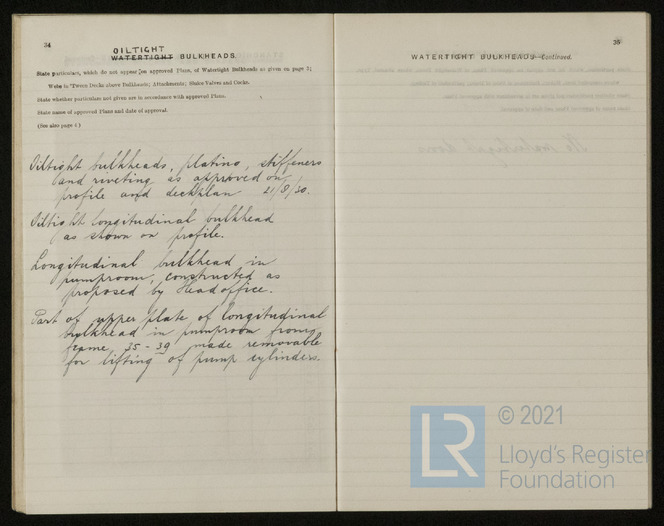 34
OILTIGHT
WATERTIGHT BULKHEADS.
State particulars, which do not appear on approved Plans, of Watertight Bulkheads as given on page 3;
Webs in 'Tween Decks above Bulkheads; Attachments; Sluice Valves and Cocks.
State whether particulars not given are in accordance with approved Plans.
State name of approved Plans and date of approval.
(See also page 4)
Oiltight bulkheads, plating, stiffeners
and riveting as approved on
profile and deckplan 21/8/30.
Oiltight longitudinal bulkhead
as shown on profile.
Longitudinal bulkhead in
pumproom, constructed as
proposed by Headoffice.
Part of upper plate of longitudinal
bulkhead in pumproom from
frame 35 - 39 made removable
for lifting of pump cylinders.
35
WATERTIGHT BULKHEADS—Continued.
LR
© 2021
Lloyd's Register
Foundation